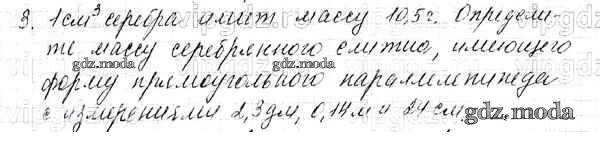 3. 1 см³ серебра имеет массу 10,5 г. Определи-
те массу серебрянного слитка, имеющего
gdz.moda gdz.moda
форму прямоугольного параллелепипеда
с измерениями 2,3 дм, 0,14 м и 24 см
gdz.moda